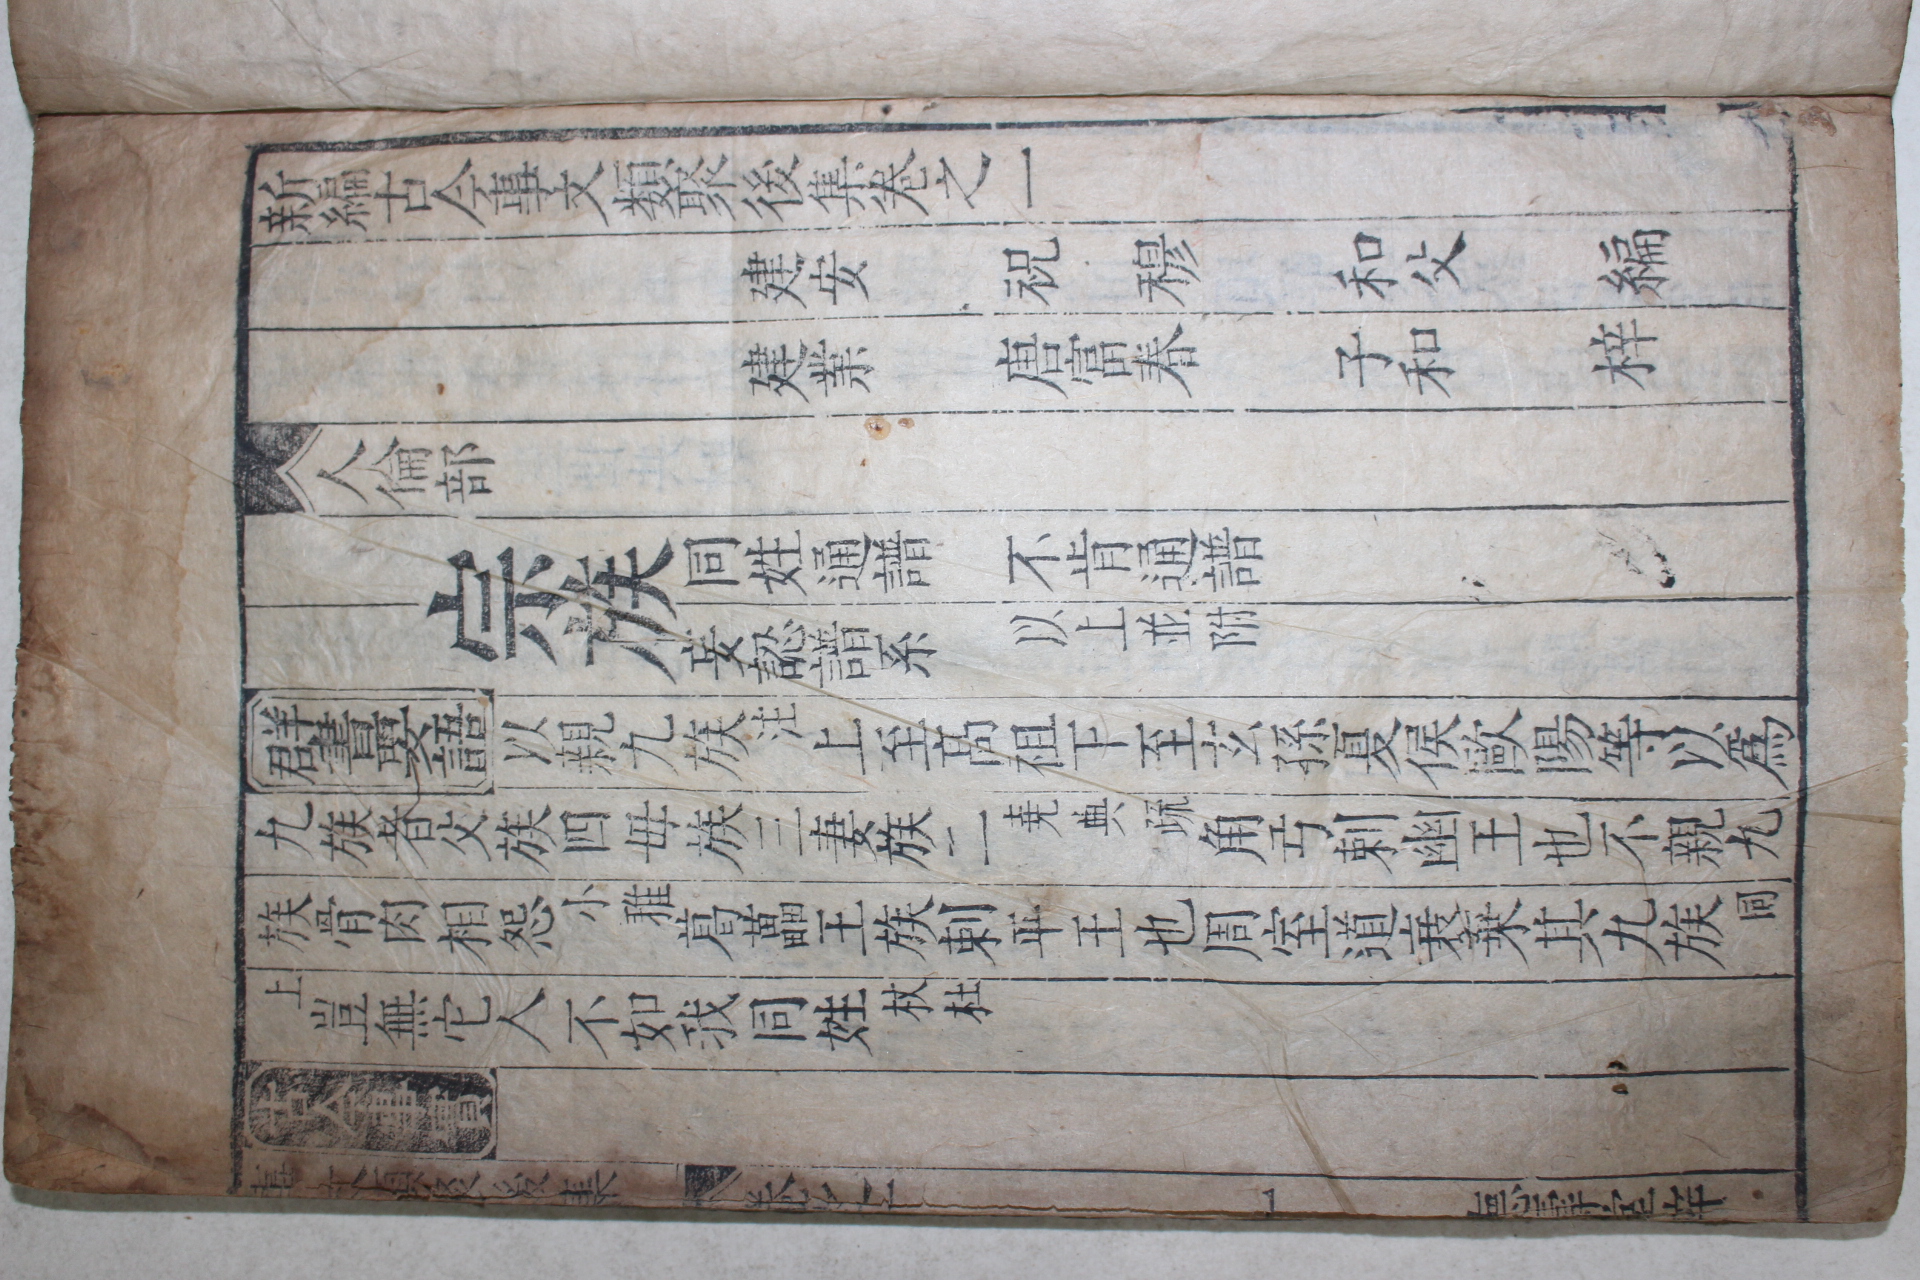 新編古今事文類聚後集卷之一
建安　祝　穆　和父　編
建業　唐富春　子和　梓
人倫部
宗族
同姓通譜　不肯通譜
妄認譜系　以上並附
群書要語　以親九族注上至高祖下至玄孫夏侯歐陽等以爲
九族者父族四母族三妻族二堯典疏角弓刺幽王也不親九
族骨肉相怨小雅葛藟王族刺平王也周室道衰棄其九族同
上豈無它人不如我同姓杕杜
古今事實
事文類聚後集　卷之一　一　德壽堂梓